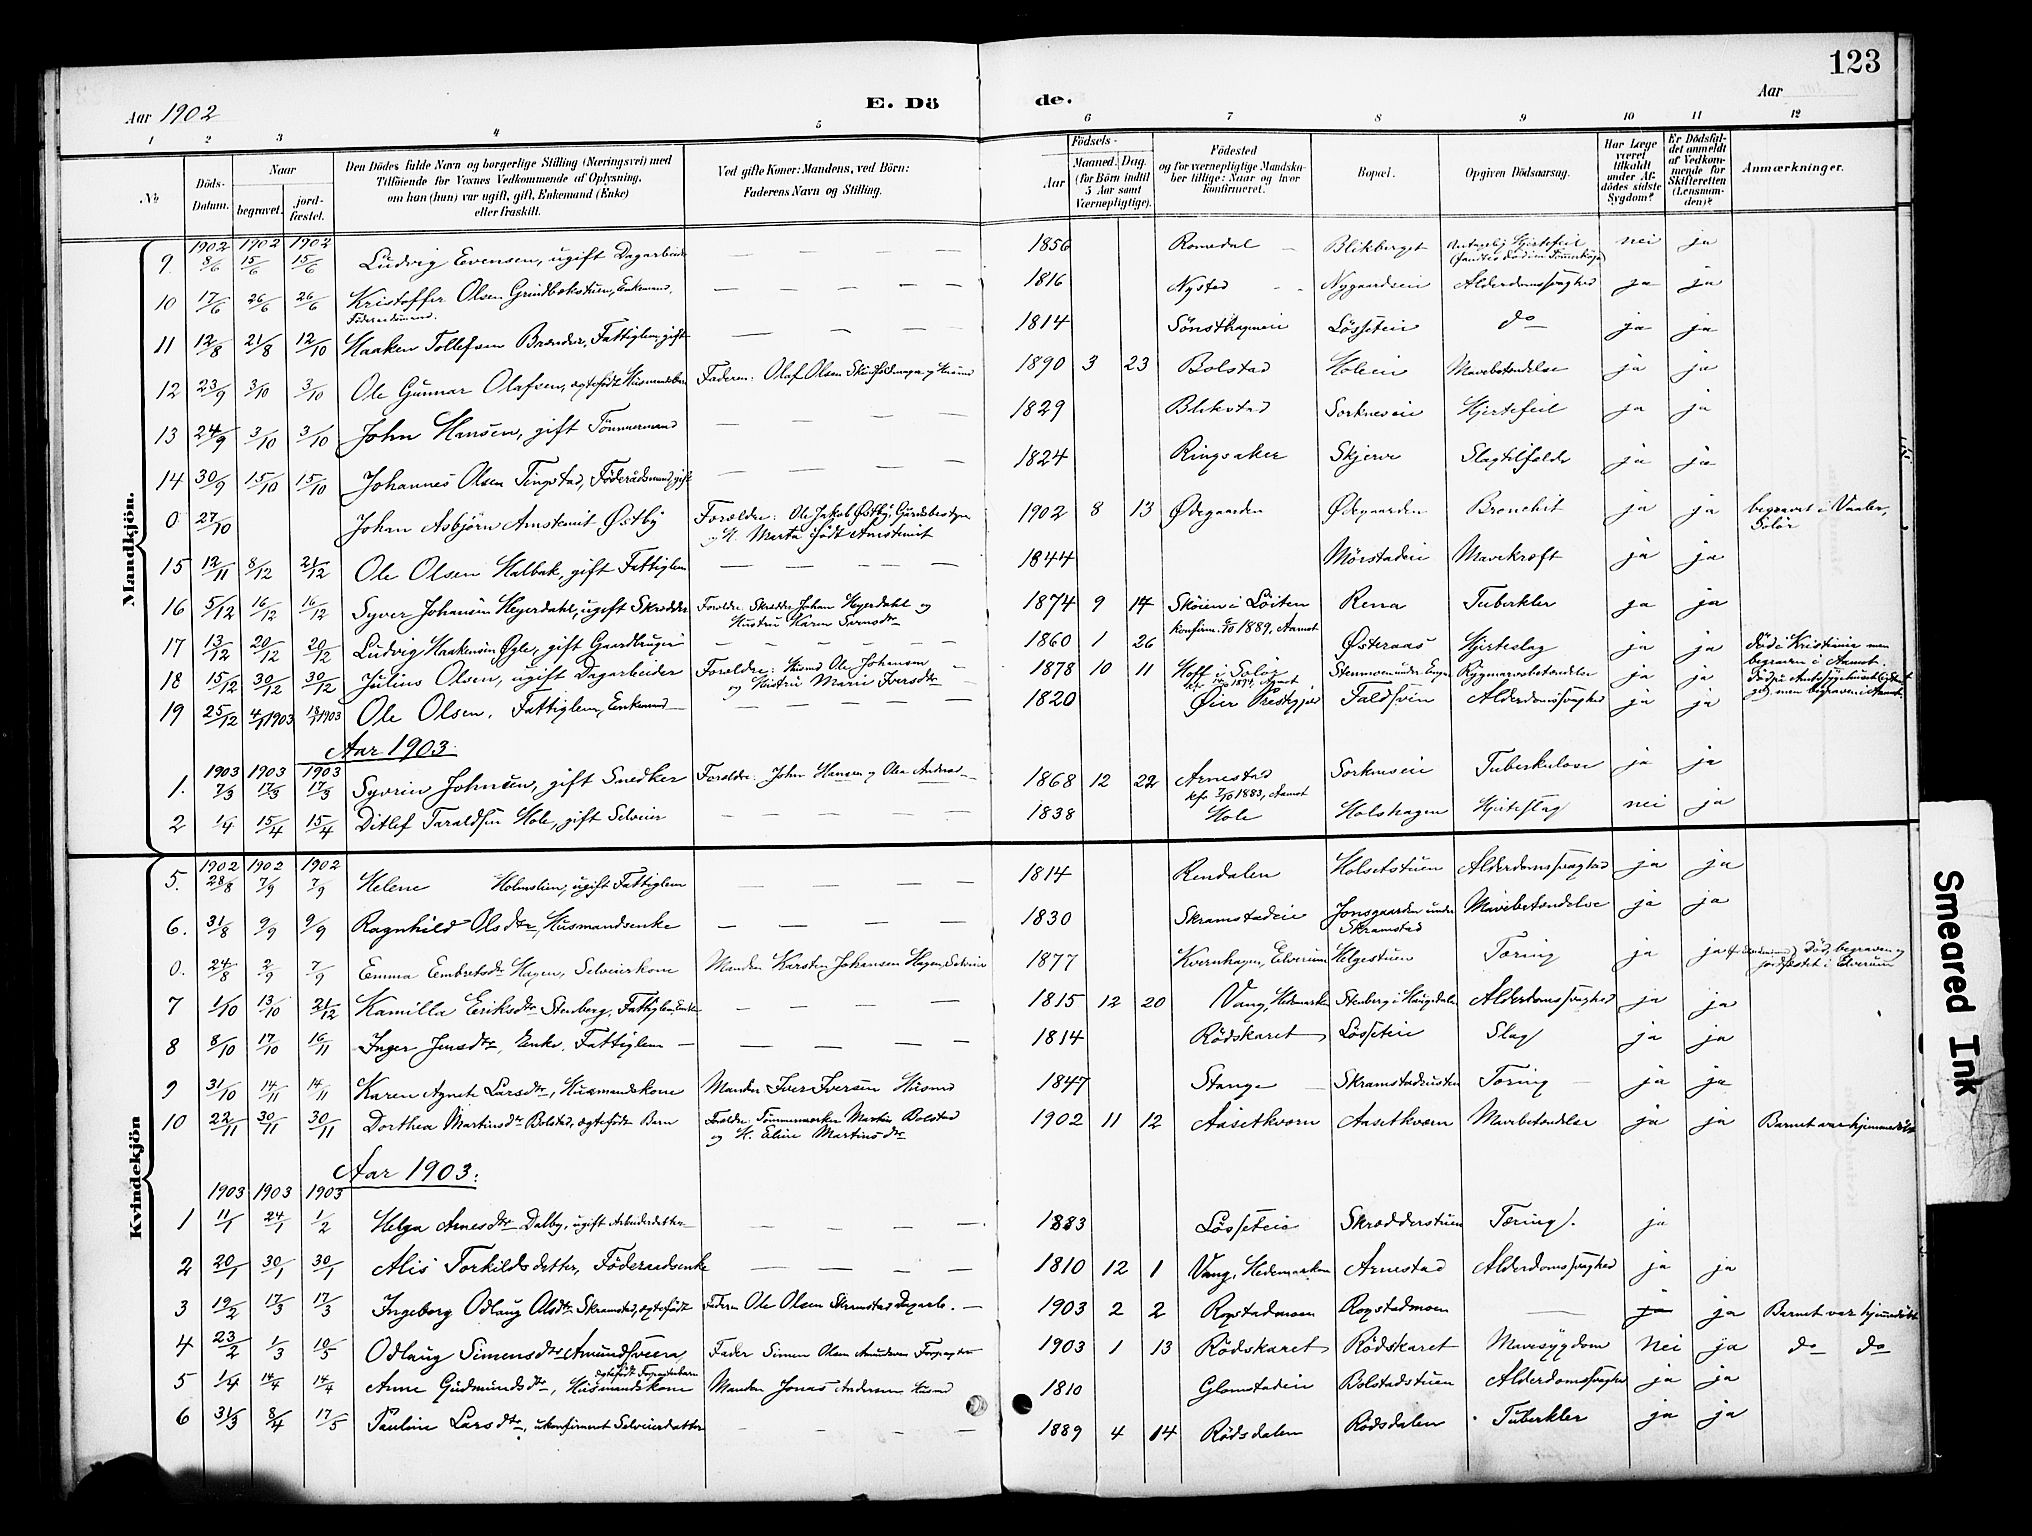 123
Aar 1902
E. Dö de.
Aar
1 2 3 4 5 6 7 8 9 10 11 12
No
Döds-Datum.
Naar begravet. jordfæstet.
Den Dödes fulde Navn og borgerlige Stilling (Næringsvei) med Tilföiende for Voxnes Vedkommende af Oplysning, om han (hun) var ugift, gift, Enkemand (Enke) eller fraskilt.
Ved gifte Koner: Mandens, ved Börn: Faderens Navn og Stilling.
Födsels- Aar Maaned. Dag. (for Börn indtil 5 Aar samt Værnepligtige).
Födested og for værnepligtige Mandskaber tillige: Naar og hvor konfirmeret.
Bopæl.
Opgiven Dödsaarsag.
Har Læge været tilkaldt under Afdödes sidste Sygdom?
Er Dödsfaldet anmeldt af Vedkommende for Skifteretten (Lensmanden)?
Anmærkninger.
Mandkjön.
1902 1902 1902
9. 8/6 15/6 15/6 Ludvig Evensen, ugift Dagarbeider — — — 1856 Romedal Blikberget Hjertefeil nei ja
10 17/6 26/6 26/6 Kristoffer Olsen Grindbakstuen, Enkemand, Föderaadsmand. — — — 1816 Nystad Nygaardseie Alderdomssvaghed ja ja
11 12/8 21/8 12/10 Haaken Tollefsen Brænder, Fattiglem, gift — — — 1814 Sönsthagneie Lösseteie do ja ja
12 23/9 3/10 3/10 Ole Gunnar Olafsen, ægtefödt Husmandsbarn Faderen: Olaf Olsen 1890 3 23 Bolstad Holeeie Mavebetændelse ja ja
13 24/9 3/10 3/10 John Hansen, gift Tömmermand — — — 1829 Blikstad Sorkneseie Hjertefeil ja ja
14 30/9 15/10 15/10 Johannes Olsen Tingstad, Föderådsmand, gift — — — 1824 Ringsaker Skjerve Slagtilfælde ja ja
0 27/10 Johan Asbjörn Arnstemit Østby Forældre: Ole Jakob Østby, Gårdbestyrer og H. Marta födt Arnstemit 1902 8 13 Ødegaarden Ødegaarden Bronchit ja ja begravet i Vaaler, Solör
15 12/11 8/12 21/12 Ole Olsen Halbak, gift Fattiglem — — — 1844 Mörstadeie Mavekræft ja ja
16 5/12 16/12 16/12 Syver Johansen Heyerdahl, ugift Skrædder Foreldre: Skrædder Johan Heyerdahl og Hustru Karen 1874 9 14 Sköien i Löiten konfirm. 6/10 1889, Aamot Rena Tuberkler ja ja
17 13/12 20/12 20/12 Ludvig Haakensen Øgle, gift Gaardbruger — — — 1860 1 26 Østeraas Hjerteslag ja ja död i Kristiania men begraven i Aamot.
18 15/12 30/12 30/12 Julius Olsen, ugift Dagarbeider Foreldre: Husmd Ole Johansen og Hustru Marie Iversdtr 1878 10 11 Hoff i Solör Stenmoen under Rygmarvsbetændelse ja ja men begraven i Aamot.
19 25/12 4/1 1903 18/1 1903 Ole Olsen, Fattiglem, Enkemand — — — 1820 Øier Prestegjeld Faldsvien Alderdomssvaghed ja ja
Aar 1903.
1903 1903 1903
1. 7/3 17/3 17/3 Syverin Johnsen, gift Snedker Foreldre: John Hansen og Olea 1868 12 22 Arnestad kfr 7/10 1883, Aamot Sorkneseie Tuberkulose ja ja
2 1/4 15/4 15/4 Ditlef Taraldsen Hole, gift Selveier — — — 1838 Hole Holshagen Hjerteslag nei ja
Kvindekjön
1902 1902 1902
5. 28/8 7/9 7/9 Helene Holmslien, ugift Fattiglem — — — 1814 Rendalen Holsetstuen Alderdomssvaghed ja ja
6. 31/8 9/9 9/9 Ragnhild Olsdtr, Husmandsenke — — — 1830 Skramstadeie Jonsgaarden under Skramstad Mavebetændelse ja ja
0. 24/8 2/9 7/9 Emma Embretsdtr Hagen, Selveierkone Manden Karsten Johansen Hagen, Selveier 1877 Kvernhagen, Elverum Helgestuen Tæring ja ja Död, begraven og jordfæstet i Elverum
7 1/10 13/10 21/12 Kamilla Eriksdtr Stenberg, Fattiglem, Enke — — — 1815 12 20 Vang, Hedemarken Stenberg i Haugedalen Alderdomssvaghed ja ja
8 8/10 17/10 16/11 Inger Jensdtr, Enke, Fattiglem — — — 1814 Rödskaret Lösseteie Slag ja ja
9 31/10 14/11 14/11 Karen Agnete Larsdtr, Husmandskone Manden Iver Iversen Husmd 1847 Stange Skramstadeie Tæring ja ja
10 22/11 30/11 30/11 Dorthea Martinsdtr Bolstad, ægtefödt Barn Foreldre: Martin Bolstad og H. Eline Martinsdtr 1902 11 12 Aasetkværn Aasetkværn Mavebetændelse ja ja Barnet var hjemmedöbt
Aar 1903.
1903 1903 1903
1 11/1 24/1 1/2 Helga Arnesdtr Dalby, ugift Arbeiderdatter — — — 1883 Lösseteie Skrædderstuen Tæring. ja
2 20/1 30/1 30/1 Alis Torkildsdatter, Föderaadsenke — — — 1810 12 1 Vang, Hedemarken Arnestad Alderdomssvaghed ja ja
3 19/2 17/3 17/3 Ingeborg Odlaug Olsdtr Skramstad, ægtefödt Faderen Ole Olsen Skramstad Dagarb. — 1903 2 2 Ropstadmoen Ropstadmoen — ja ja Barnet var hjemmedöbt
4 23/2 1/3 10/5 Odlaug Simensdtr Amundsveen, ægtefödt Forpagterbarn Fader Simen Olsen Forpagter 1903 1 13 Rödskaret Rödskaret Mavesygdom Nei ja do do
5 1/4 14/4 14/4 Anne Gudmundsdtr, Husmandskone Manden Jonas Andersen Husmd 1810 Glomstadeie Bolstadstuen Alderdomssvaghed ja ja
6 31/3 8/4 17/5 Pauline Larsdtr, ukonfirmert Selveierdatter — — — 1889 4 14 Rödsdalen Rödsdalen Tuberkler ja ja
Smeared Ink